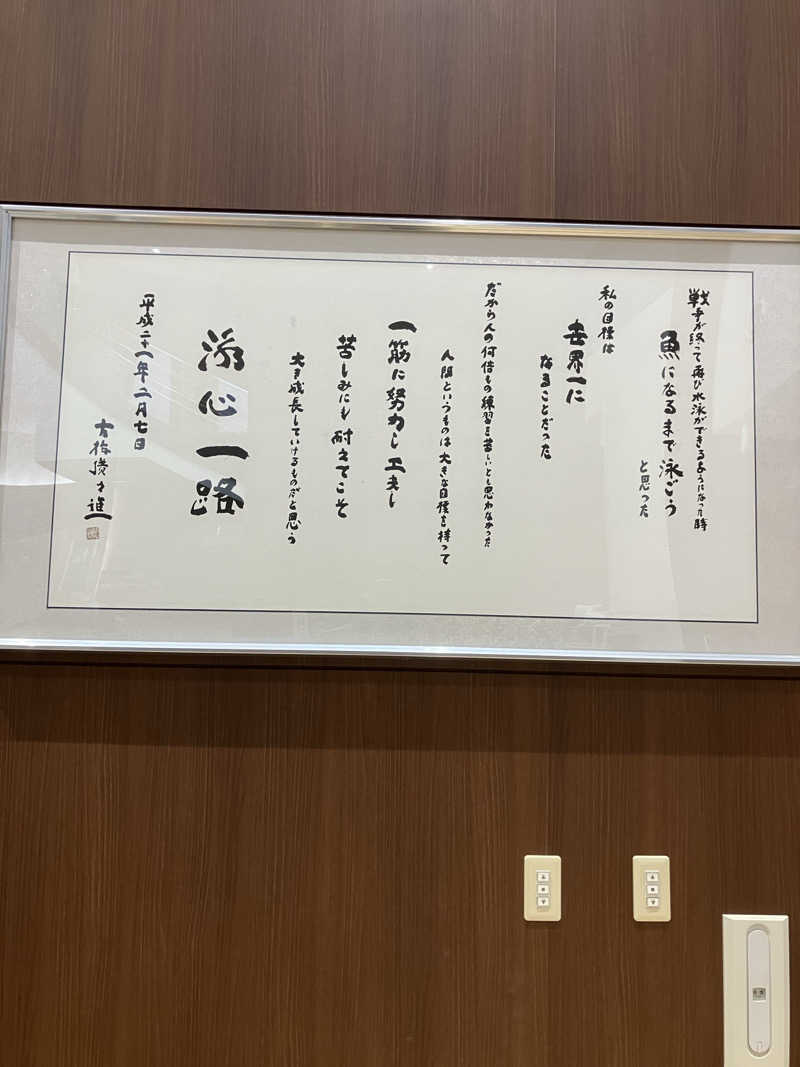 戦争が終って再び水泳ができるようになった時
魚になるまで泳ごう
と思った
私の目標は
世界一に
なることだった
だから人の何倍もの練習も苦しいとも思わなかった
人間というものは大きな目標を持って
一筋に努力し工夫し
苦しみにも耐えてこそ
大きく成長していけるものだと思う
泳心一路
平成二十一年二月七日
古橋廣之進